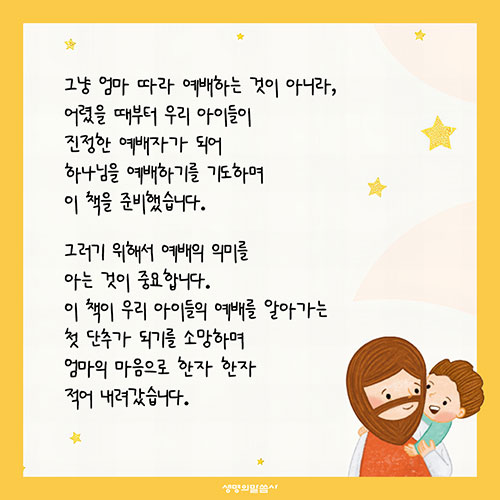 그냥 엄마 따라 예배하는 것이 아니라,
어렸을 때부터 우리 아이들이
진정한 예배자가 되어
하나님을 예배하기를 기도하며
이 책을 준비했습니다.
그러기 위해서 예배의 의미를
아는 것이 중요합니다.
이 책이 우리 아이들의 예배를 알아가는
첫 단추가 되기를 소망하며
엄마의 마음으로 한자 한자
적어 내려갔습니다.
생명의말씀사